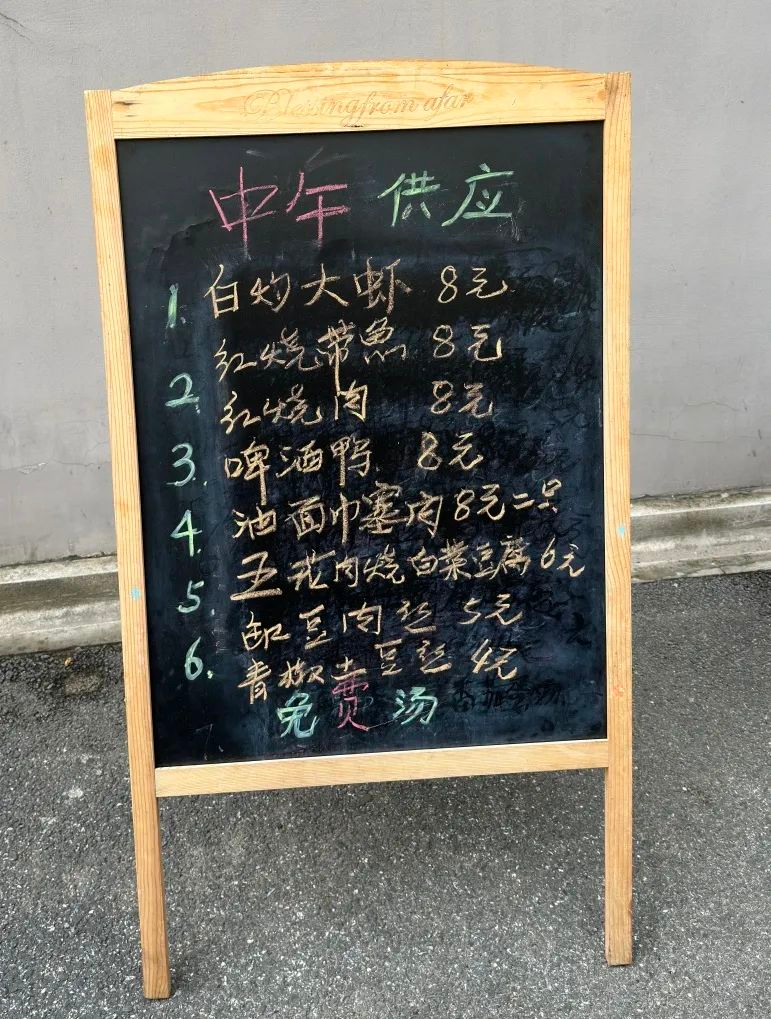 Blessing from afar
中午供应
1. 白灼大虾 8元
红烧带鱼 8元
2. 红烧肉 8元
3. 啤酒鸭 8元
4. 油面巾塞肉 8元二只
五花肉烧白菜豆腐 6元
5. 豇豆肉丝 5元
6. 青椒土豆丝 4元
免费汤
7.